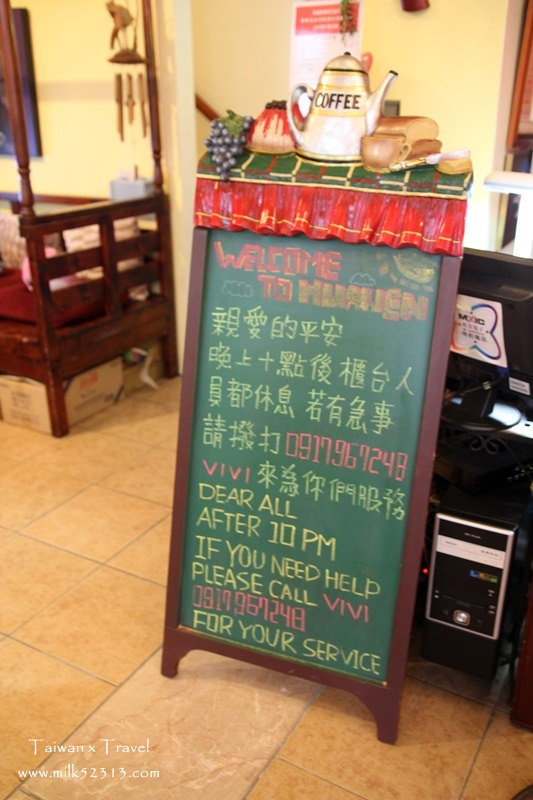 COFFEE
WELCOME
TO HUANGN
親愛的平安
晚上十點後櫃台人
員都休息 若有急事
請撥打0917967248
VIVI來為你們服務
DEAR ALL
AFTER 10 PM
IF YOU NEED HELP
PLEASE CALL VIVI
0917967248
FOR YOUR SERVICE
Taiwan x Travel
www.milk52313.com